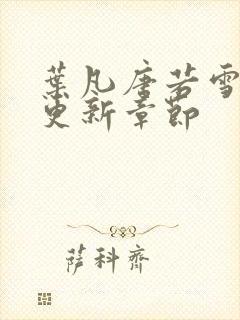 葉凡唐若雪
更新章節
薩科齊